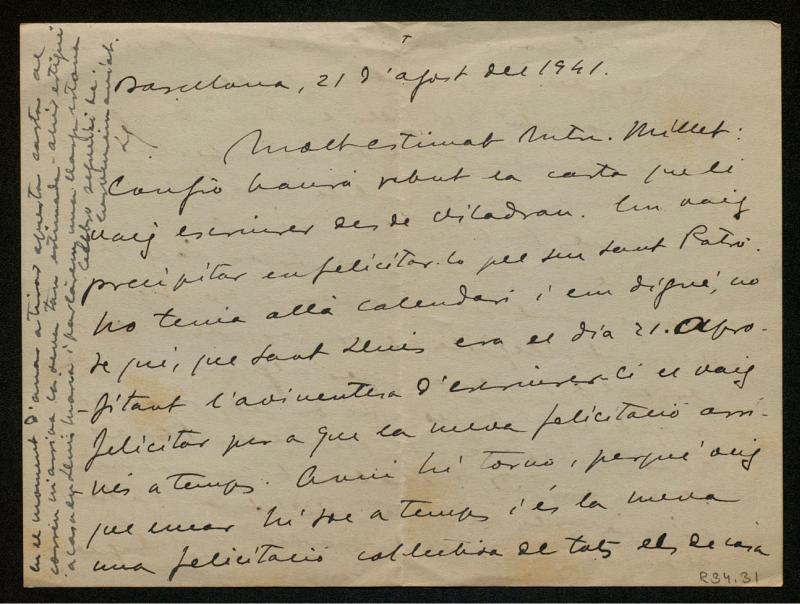 Barcelona, 21 d'agost del 1941.
Molt estimat Mtre. Millet:
Confio haurà rebut la carta que li
vaig escriurer desde Viladrau. Em vaig
precipitar en felicitar-lo pel seu sant Patró.
No tenia allà calendari i em digué, no
se qui, que Sant Lluis era el dia 21. Apro-
fitant l'avinentesa d'escriurer-li el vaig
felicitar per a que la meva felicitació arri-
vés a temps. Avui hi torno, perquè veig
que encar hi soc a temps i és la meva
una felicitació col·lectiva de tots els de casa
En el moment d'anar a tirar aquesta carta al
correu m'arriva la seva tan estimada - ahir estigué
a casa en Lluis Maria i parlàrem una llarga estona
Celebro segueixi bé.
R34.31